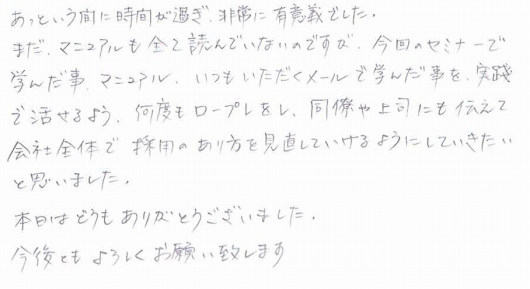 あっという間に時間が過ぎ、非常に有意義でした。
まだ、マニュアルも全て読んでいないのですが、今回のセミナーで
学んだ事、マニュアル、いつもいただくメールで学んだ事を、実践
で活せるよう、何度もロープレをし、同僚や上司にも伝えて
会社全体で採用のあり方を見直していけるようにしていきたい
と思いました。
本日はどうもありがとうございました。
今後ともよろしくお願い致します